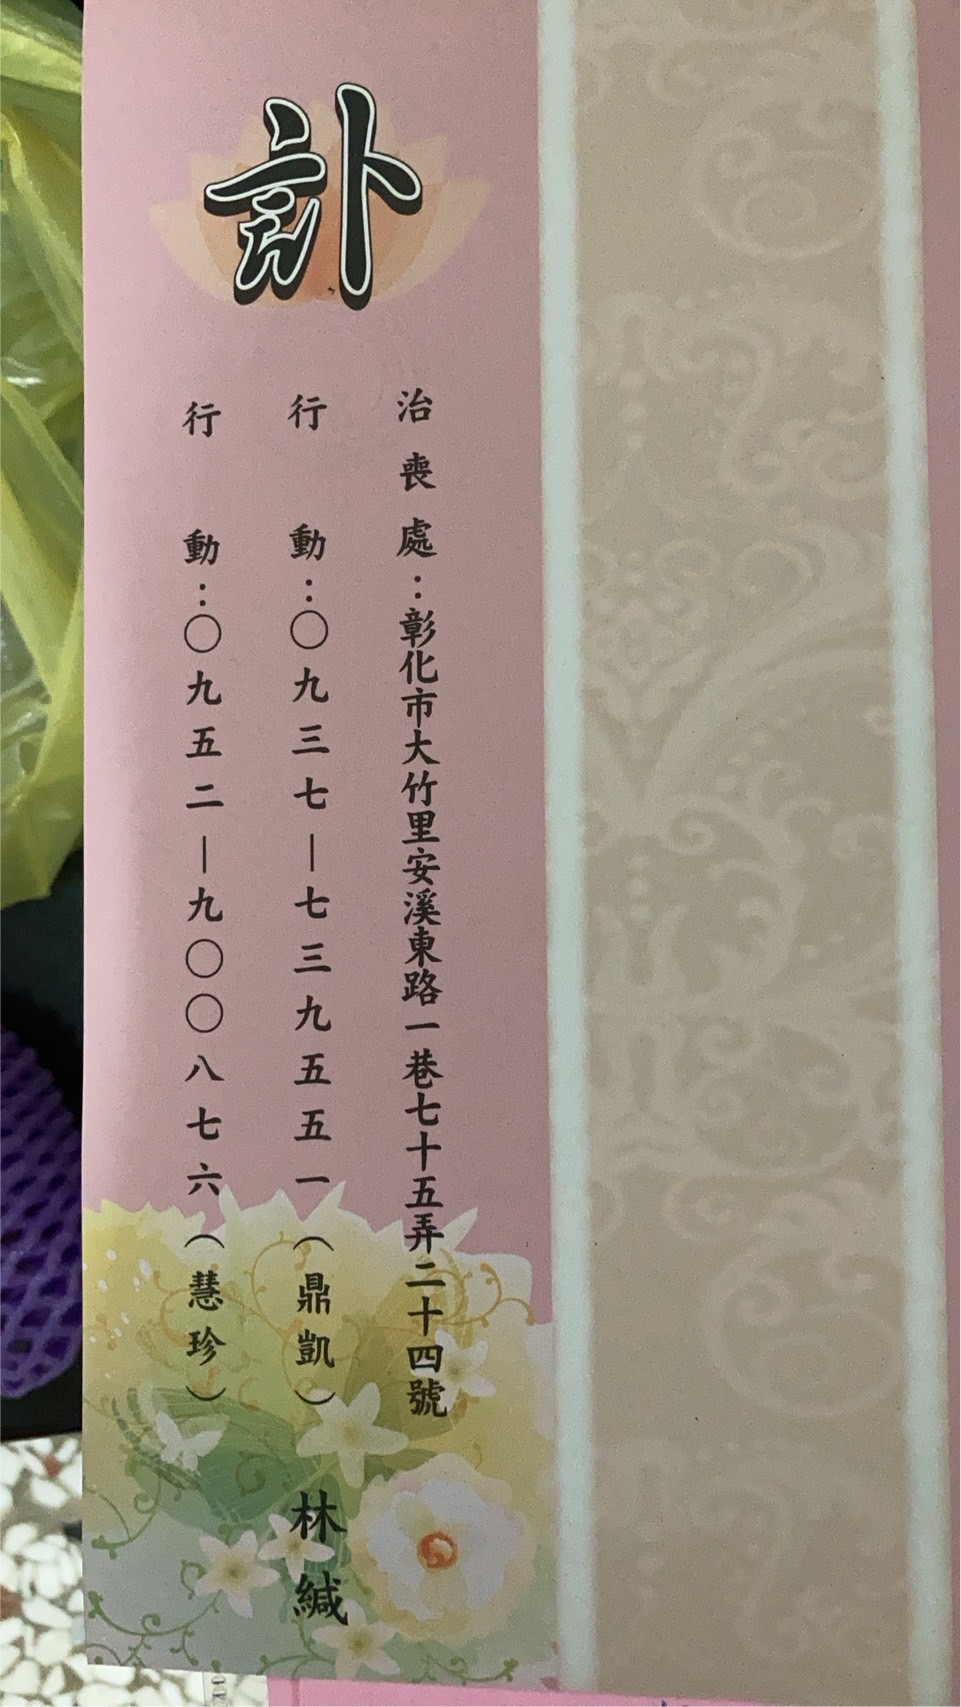 訃
治喪處：彰化市大竹里安溪東路一巷七十五弄二十四號
行動：〇九三七—七三九五五一（鼎凱）
行動：〇九五二—九〇〇八七六（慧珍）
林緘